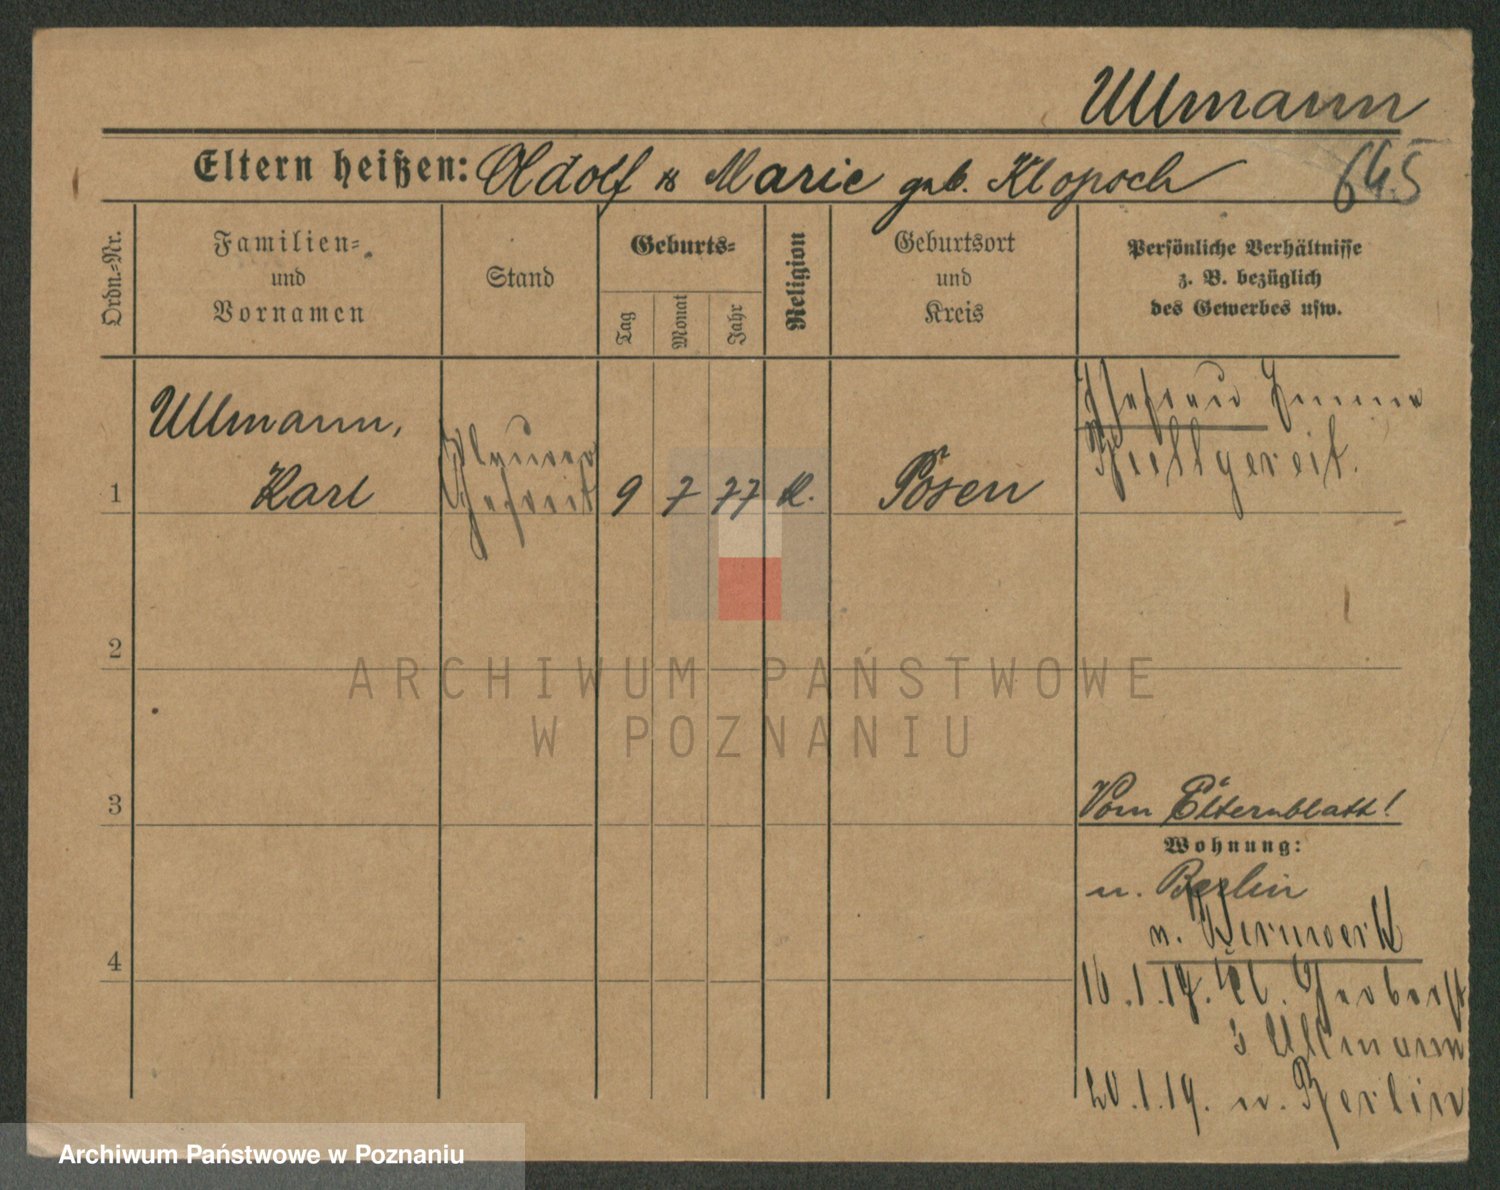 Ullmann
645
Eltern heißen: Adolf u Marie geb. Klopoch
Ordn.-Nr.
Familien- und Vornamen
Stand
Geburts-
Tag
Monat
Jahr
Religion
Geburtsort und Kreis
Persönliche Verhältnisse
z. B. bezüglich
des Gewerbes usw.
Ehefrau Emma
1
Ullmann,
Karl
Gefreit
9 7 77 k. Posen
2
3
Vom Elternblatt!
Wohnung:
n. Berlin
4
20.1.19. n. Berlin
Ullmann
ARCHIWUM PAŃSTWOWE
W POZNANIU
Archiwum Państwowe w Poznaniu